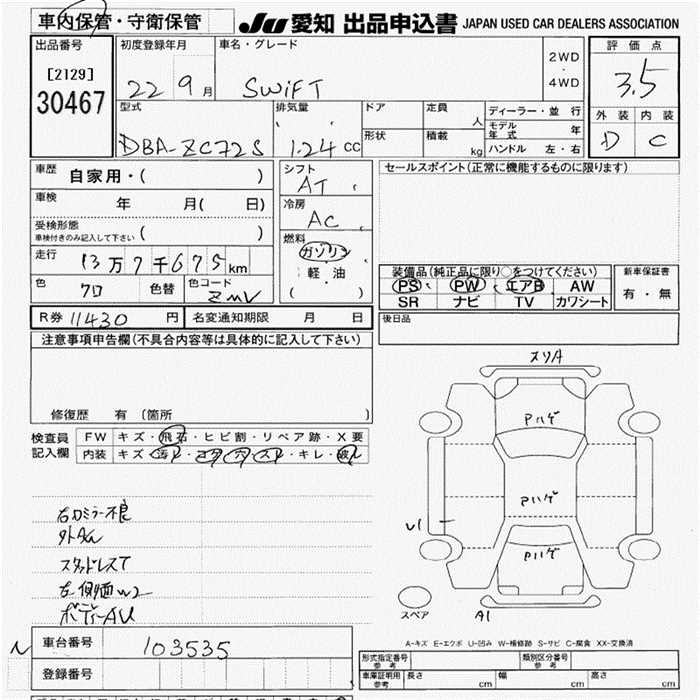 車内保管・守衛保管 JU 愛知 出品申込書 JAPAN USED CAR DEALERS ASSOCIATION
出品番号 初度登録年月 車名・グレード 評価点
[2129] 22 9月 SWiFT 2WD・4WD 3.5
30467
型式 排気量 ドア 定員 人 ディーラー・並行 外装 内装
DBA-ZC72S 1.24cc 形状 積載 kg モデル年式 年 D C
ハンドル 左・右
車歴 自家用・( ) シフト AT セールスポイント(正常に機能するものに限ります)
車検 年 月( 日) 冷房 AC
受検形態
車検付きのみ記入して下さい ( ) 燃料
走行 13万7千675km ガソリン
軽・油
( )
装備品(純正品に限り○をつけてください) 新車保証書
色 クロ 色替 色コード ZMV PS PW エアB AW 有・無
SR ナビ TV カワシート
R券 11430円 名変通知期限 月 日 後日品
注意事項申告欄(不具合内容等は具体的に記入して下さい)
修復歴 有 (箇所
検査員 FW キズ・飛石・ヒビ割・リペア跡・X要
記入欄 内装 キズ・汚れ・コゲ・穴・スレ・キレ・破れ
メリA
Pハゲ
Pハゲ
Pハゲ
U1
A1
スペア
右ドミラー不良
スタッドレスT
左側面W2
ボディーAU
A-キズ E-エクボ U-凹み W-補修跡 S-サビ C-腐食 XX-交換済
N 車台番号 103535
登録番号
形式指定番号 参考 類別区分番号 参考
車庫証明用 参考 長さ cm 幅 cm 高さ cm